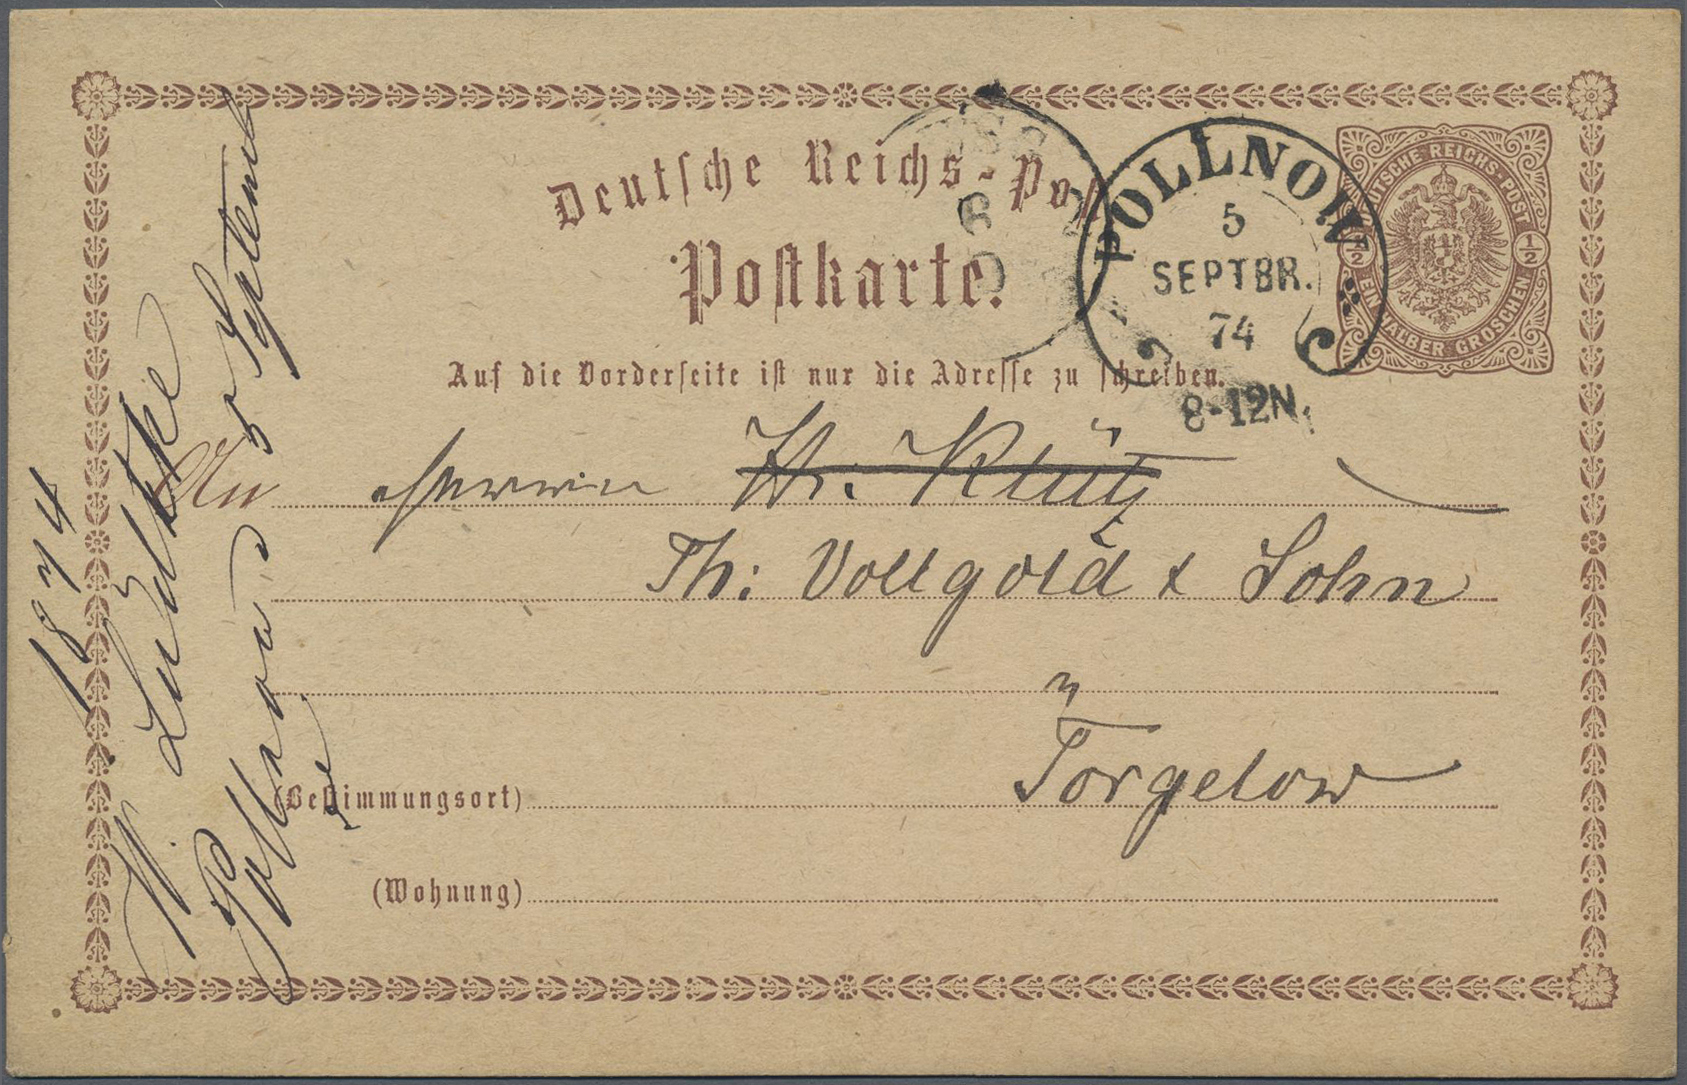 Deutsche Reichs-Post
Postkarte.
Auf die Vorderseite ist nur die Adresse zu schreiben.
POLLNOW
5
SEPTBR.
74
8-12N.
DEUTSCHE REICHS-POST
1/2 1/2
EIN HALBER GROSCHEN
An Herrn H. Klütz
Th: Vollgold & Sohn
Torgelow
(Bestimmungsort)
(Wohnung)
1874
W. Lüdtke
Pollnow
5 September